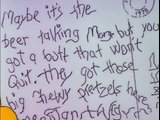 Maybe it's the
beer talking Marge but you
got a butt that won't
quit. they got those
big chewy pretzels here